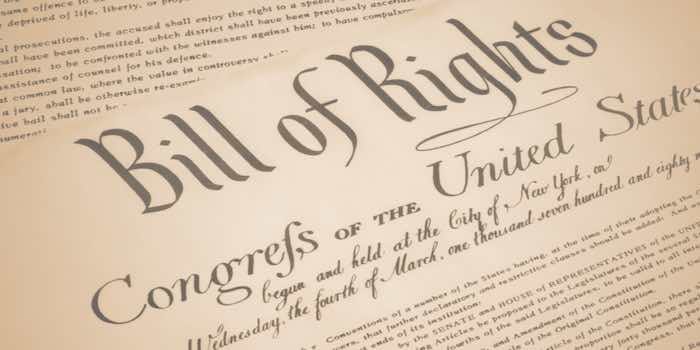 same offence to
deprived of life, liberty, or
prosecutions, the accused shall enjoy the right to a speedy
shall have been committed, which district shall have been previously
to be confronted with the witnesses against him; to have
assistance of counsel for his defence.
common law, where the value in controversy
a jury, shall be otherwise
bail shall not be
Bill of Rights
Congreſs OF THE United States
begun and held at the City of New York, on
Wednesday, the fourth of March, one thousand seven hundred and eighty
Conventions of a number of the States having, at the time of their adopting the
that further declaratory and restrictive clauses should be added: And
ends of its institution:
by the SENATE and HOUSE of REPRESENTATIVES of the
Articles be proposed to the Legislatures of the several
fourths of the said Legislatures, to be valid to all
and Amendment of the Constitution
of the Original Constitution.
Article of the Constitution, there